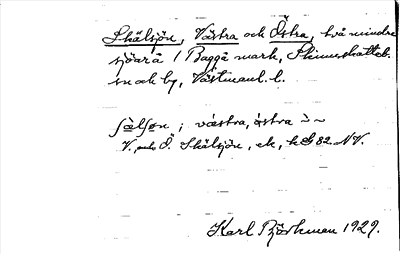 Skälsjön, Västra och Östra, två mindre
sjöar å Baggå mark, Skinnskatteb.
sn och bg, Västmanl. l.
västra, östra
V. och Ö. Skälsjön, ek, h 82 NV.
Karl Björkman 1929.